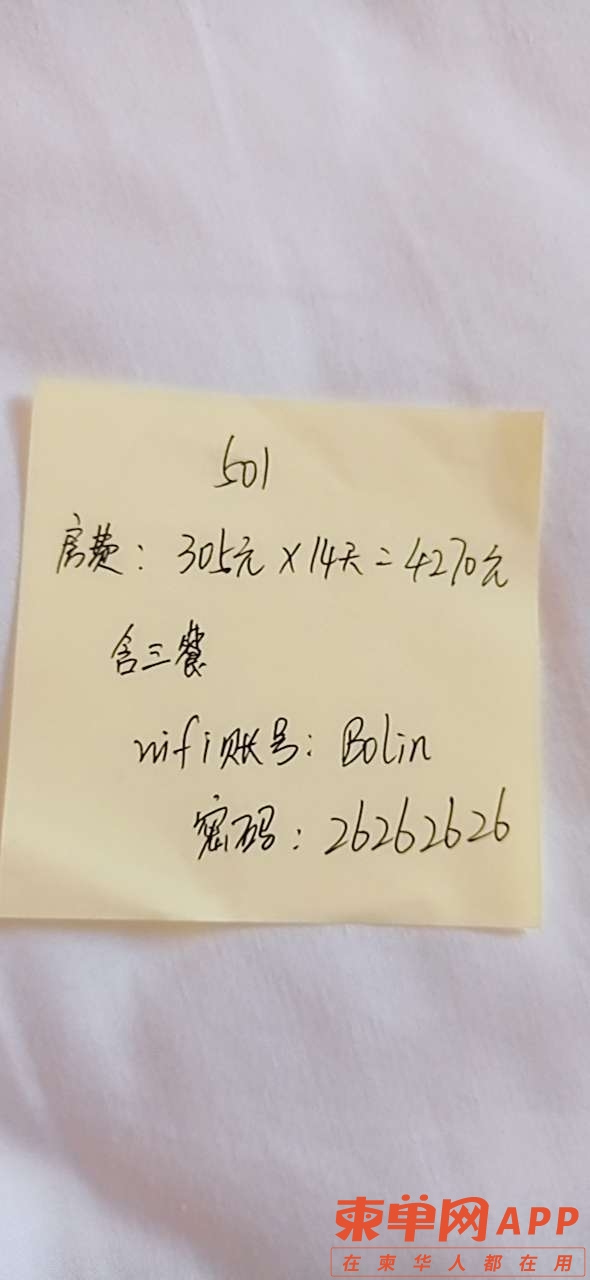 501
房费：305元×14天=4270元
含三餐
wifi账号：Bolin
密码：26262626
柬单网APP
在柬华人都在用